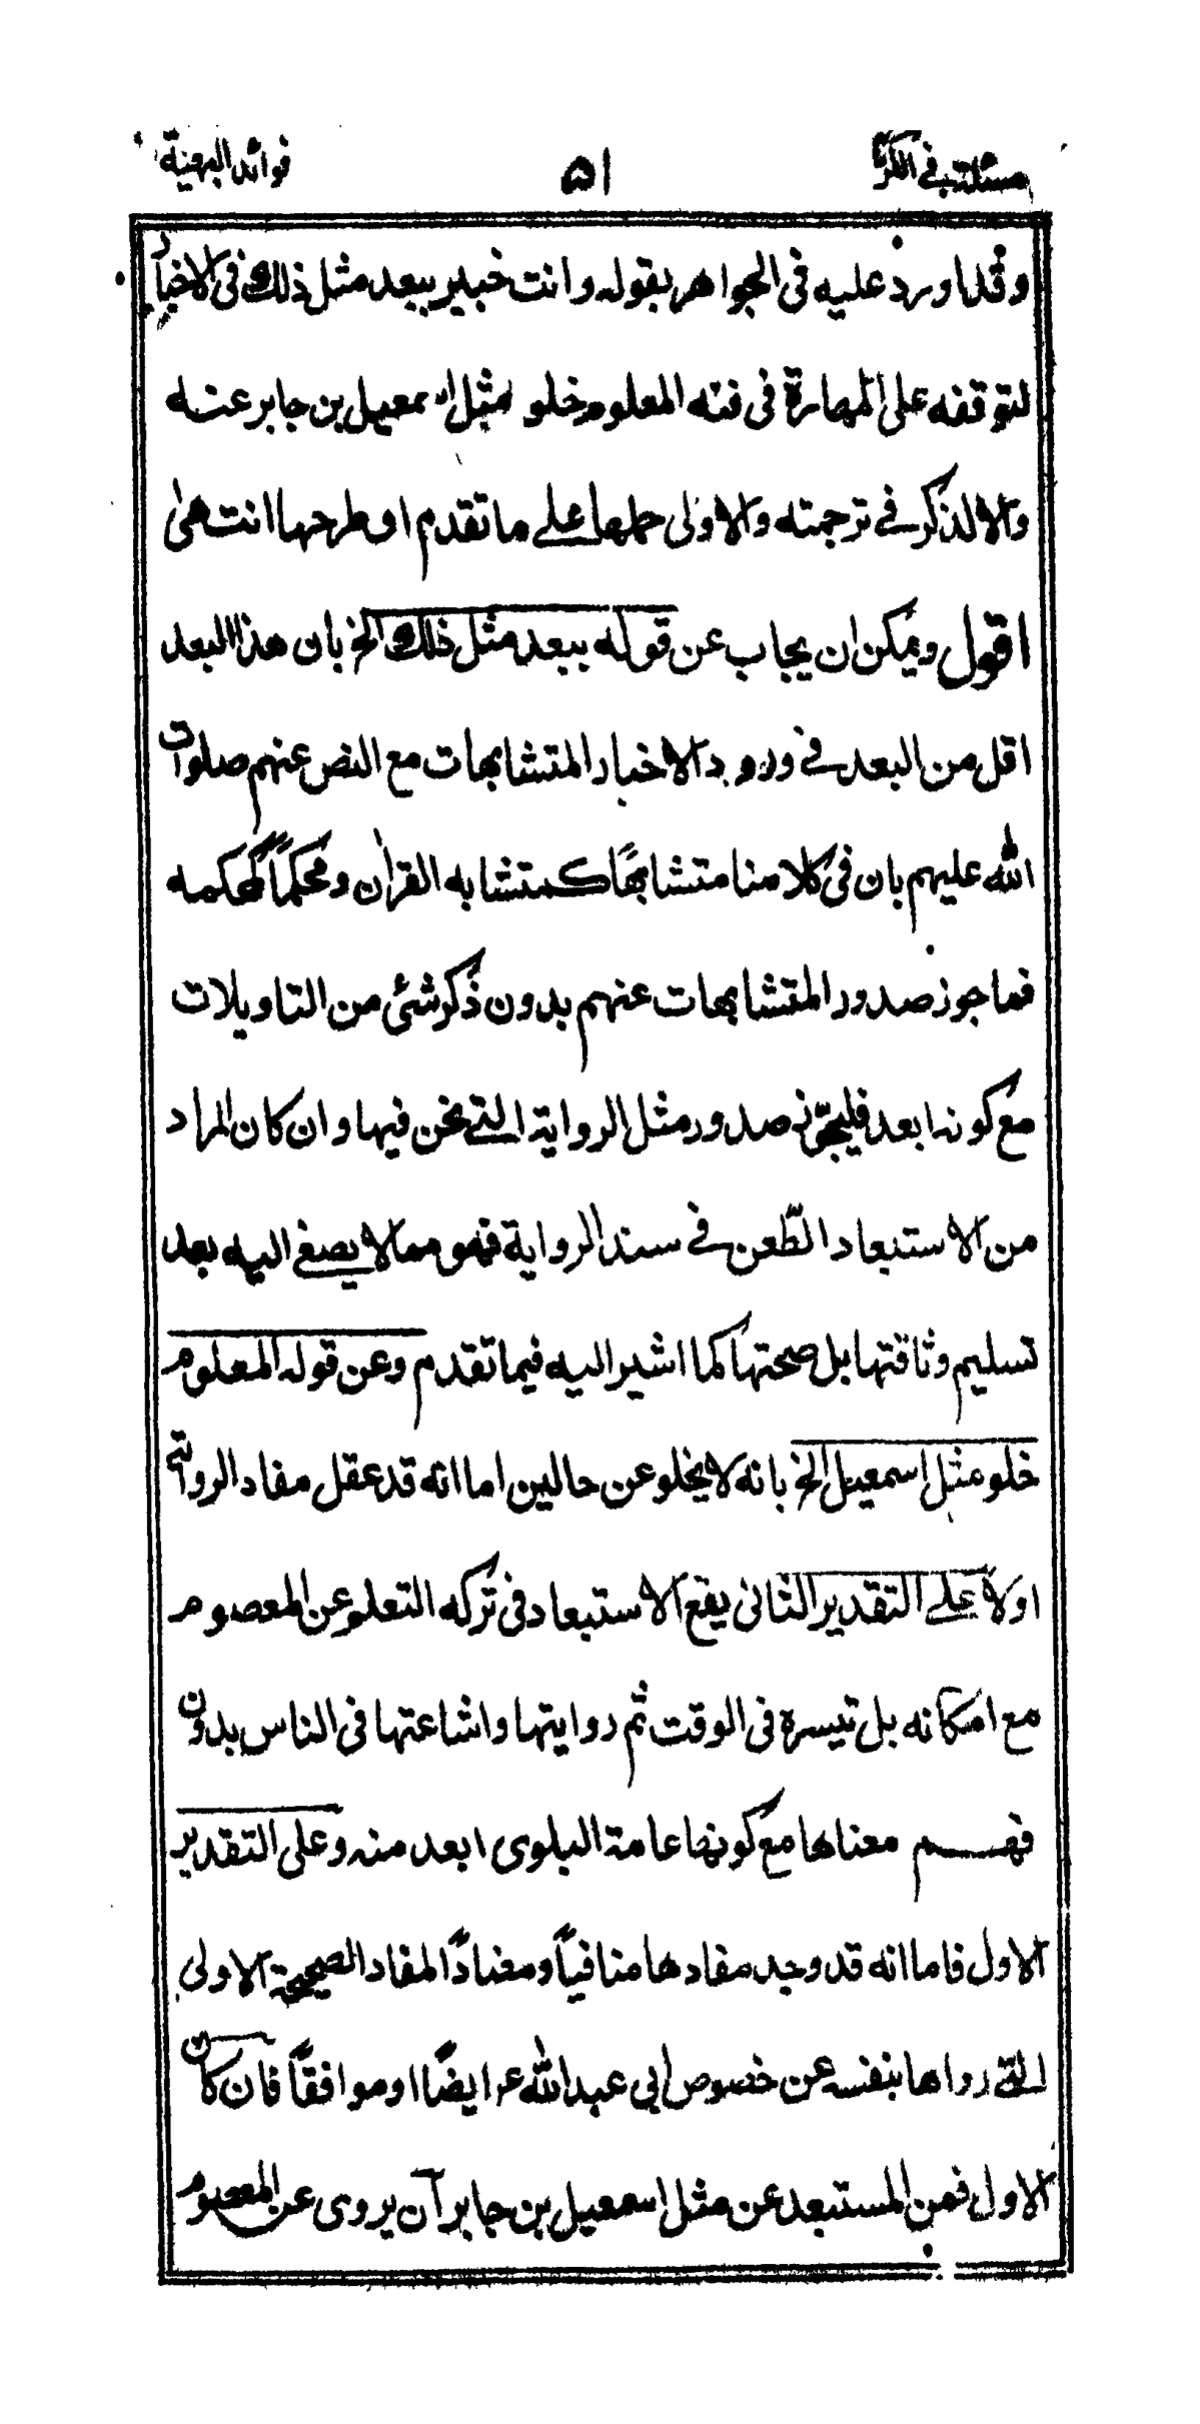 مسئلة في الكر ٥١ فوائد البهية
وقد اورد عليه في الجواهر بقوله وانت خبير ببعد مثل ذلك في الاخبار
لتوقفه على المهارة في فنه المعلوم خلو مثل اسمعيل بن جابر عنه
والا لذكر في ترجمته والاولى حملها على ما تقدم او طرحها انتهى
اقول ويمكن ان يجاب عن قوله ببعد مثل ذلك الخ بان هذا البعد
اقل من البعد في ورود الاخبار المتشابهات مع النص عنهم صلوات
الله عليهم بان في كلامنا متشابهًا كمتشابه القرآن ومحكمًا كمحكمه
فما جوز صدور المتشابهات عنهم بدون ذكر شئ من التاويلات
مع كونه ابعد فليجوّز صدور مثل الرواية التي نحن فيها وان كان المراد
من الاستبعاد الطّعن في سند الرواية فهو مما لا يصغى اليه بعد
تسليم وثاقتها بل صحتها كما اشير اليه فيما تقدم وعن قوله المعلوم
خلو مثل اسمعيل الخ بانه لا يخلو عن حالين اما انه قد عقل مفاد الرواية
اولا على التقدير الثاني يقع الاستبعاد في تركه التعلم عن المعصوم
مع امكانه بل تيسره في الوقت ثم روايتها واشاعتها في الناس بدون
فهم معناها مع كونها عامة البلوى ابعد منه وعلى التقدير
الاول فاما انه قد وجد مفادها منافيًا ومضادًا لمفاد الصحيحة الاولى
التي رواها بنفسه عن خصوص ابي عبد الله ع ايضًا او موافقًا فان كان
الاول فمن المستبعد عن مثل اسمعيل بن جابر آن يروى عن المعصوم